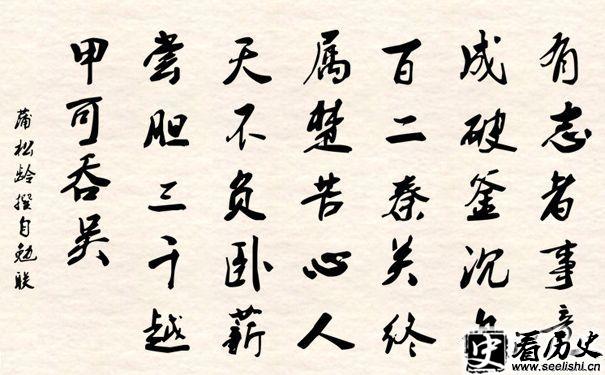 有志者事竟
成破釜沉舟
百二秦关终
属楚苦心人
天不负卧薪
尝胆三千越
甲可吞吴
蒲松龄撰自勉联
史 看历史
www.seelishi.cn